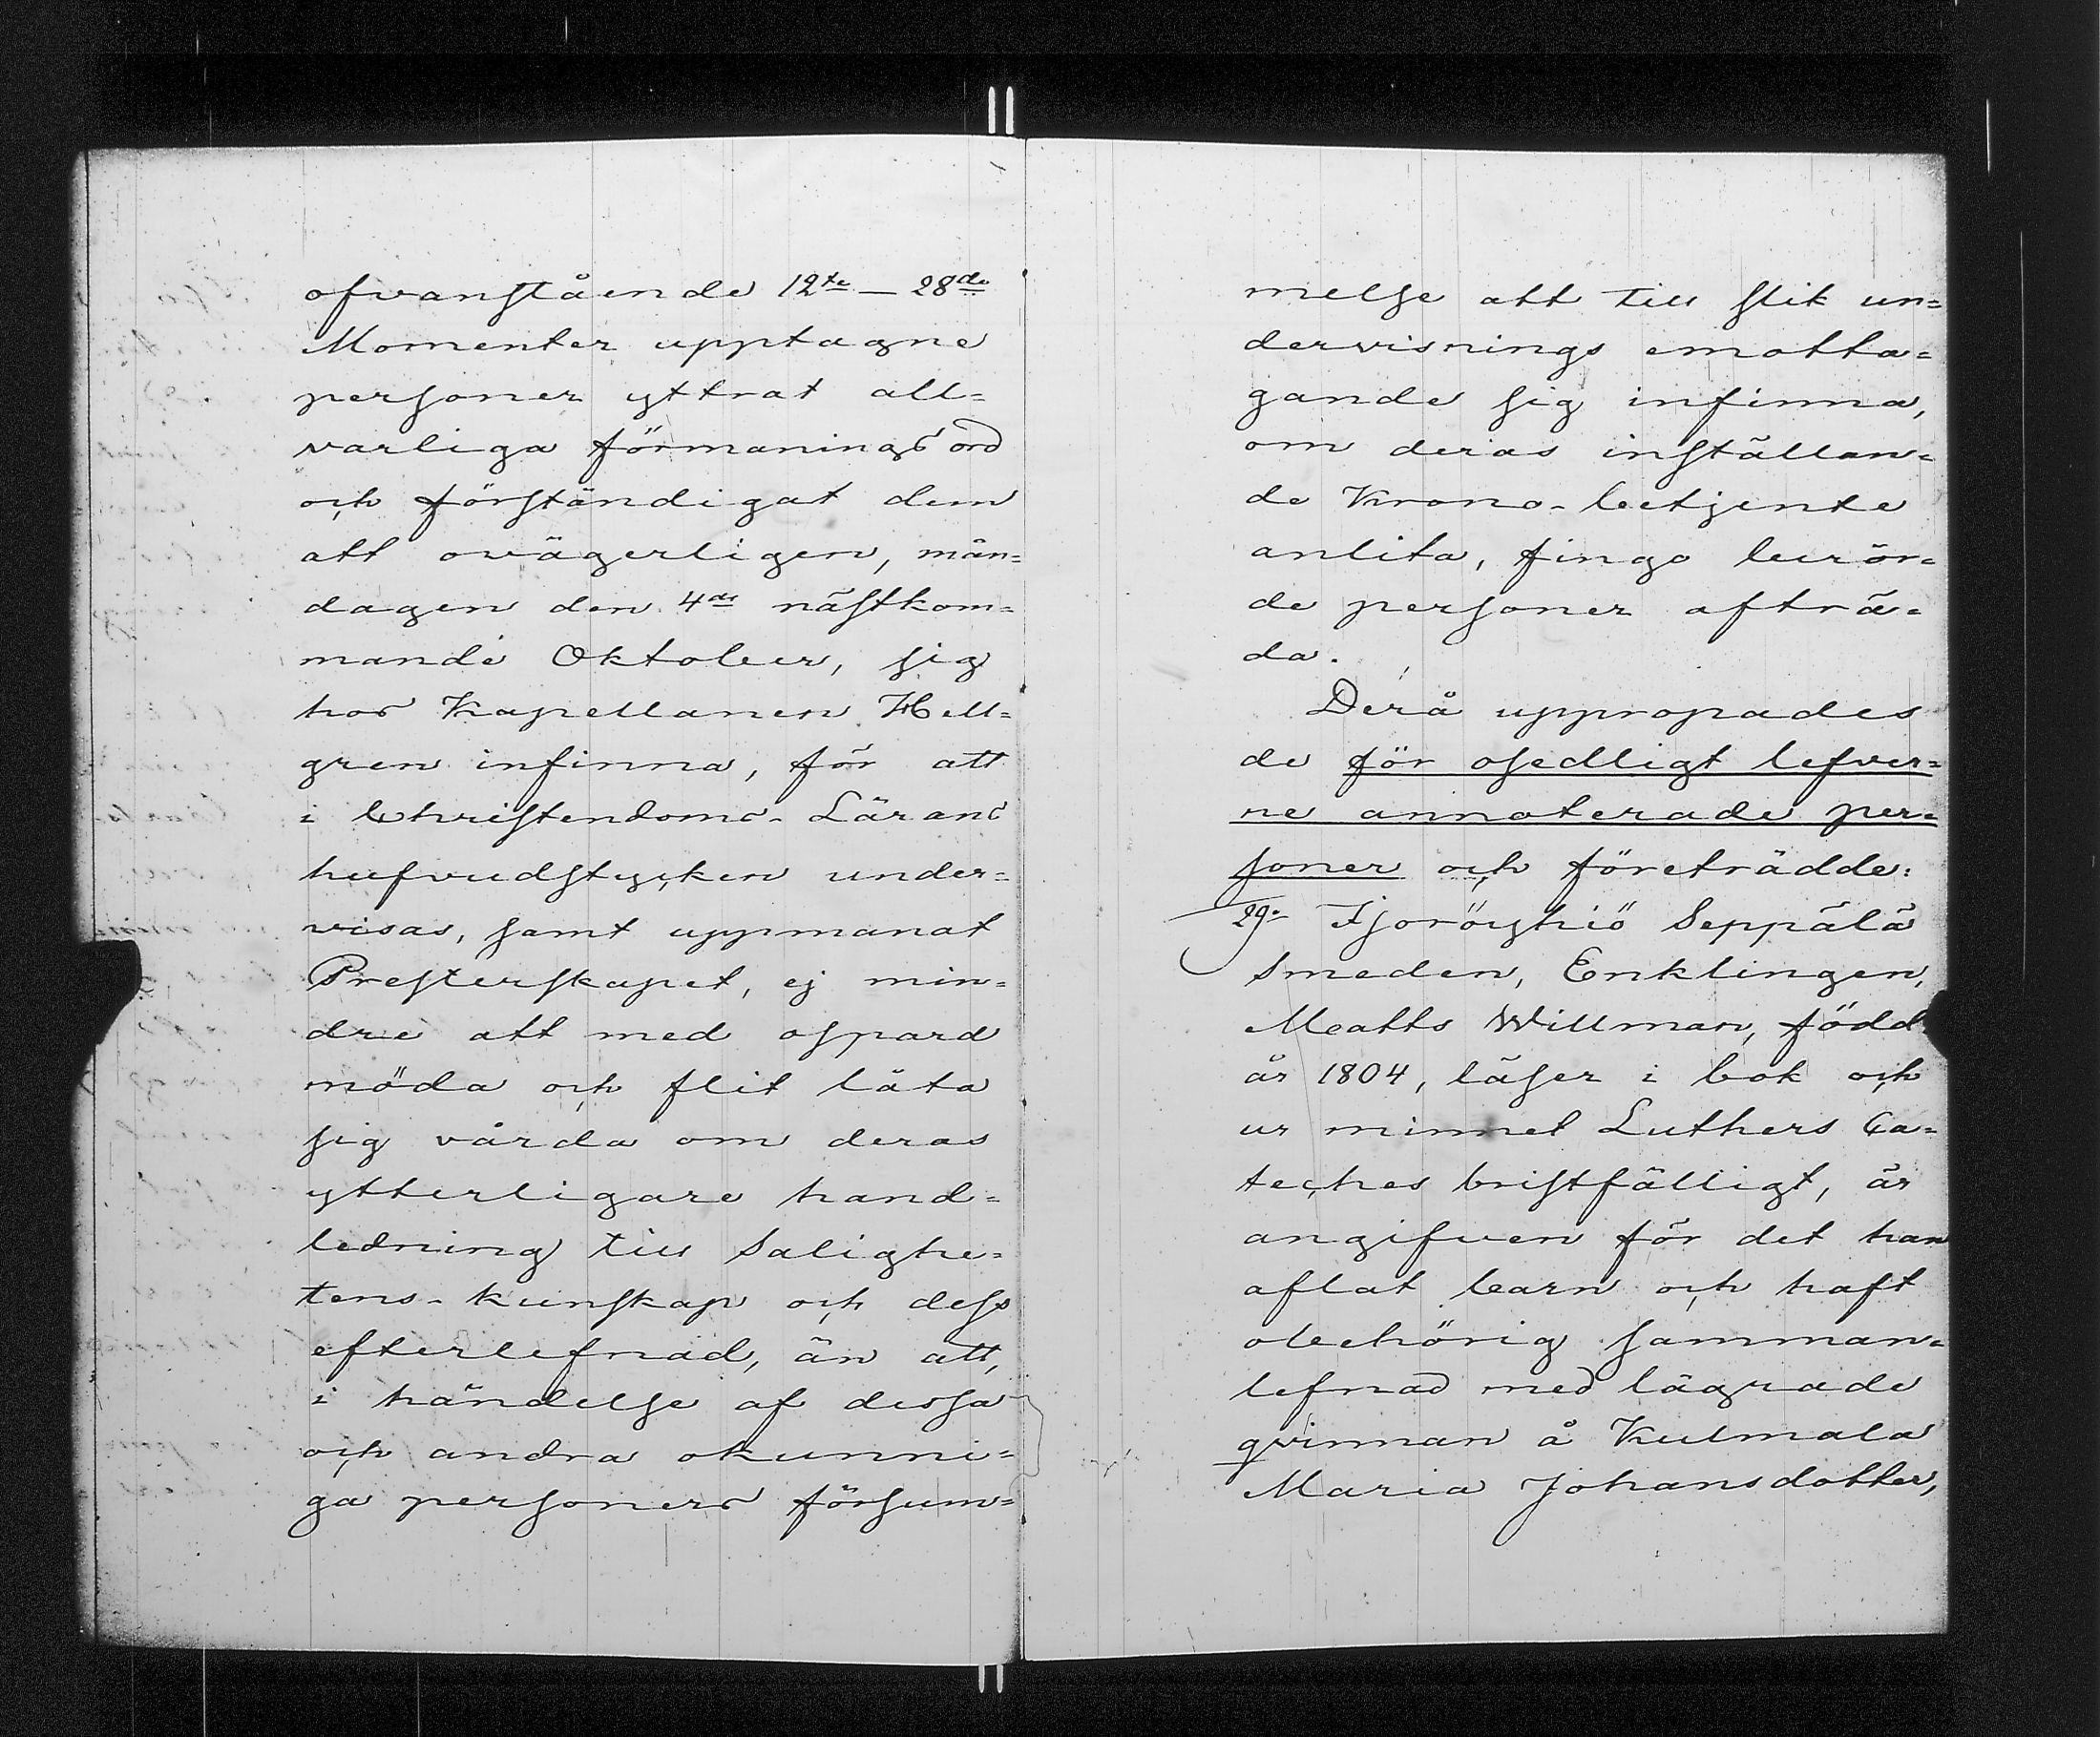 ofvanstående 12te — 28de
Momenter upptagne
personer yttrat all=
varliga förmanings ord
och förständigat dem
att ovägerligen, mån=
dagen den 4de nästkom=
mande Oktober, sig
hos Kapellanen Hell=
gren infinna, för att
i Christendoms-Lärans
hufvudstycken under=
visas, samt uppmanat
Presterskapet, ej min=
dre att med ospard
möda och flit låta
sig vårda om deras
ytterligare hand=
ledning till Salighe=
tens-kunskap och dess
efterlefnad, än att,
i händelse af dessa
och andra okunni=
ga personers försum=
melse att till slik un=
dervisnings emotta=
gande sig infinna,
om deras inställan=
de Krono-betjente
anlita, fingo berör=
de personer afträ=
da.
Derå uppropades
de för osedligt lefver=
ne annoterade per=
soner och företrädde:
29. Seppälä
Smeden, Enklingen,
Matts Willman, född
år 1804, läser i bok och
ur minnet Luthers Ca=
teches bristfälligt, är
angifven för det han
aflat barn och haft
obehörig samman=
lefnad med lägrade
qvinnan å Kulmala
Maria Johansdotter,